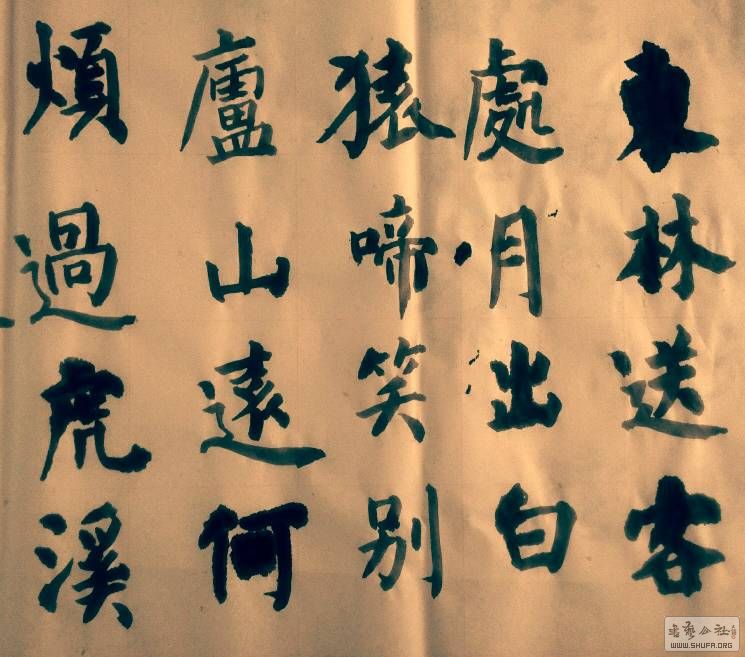 東林送客
處月出白
猿啼笑别
廬山遠何
煩過虎溪
書藝公社
WWW.SHUFA.ORG